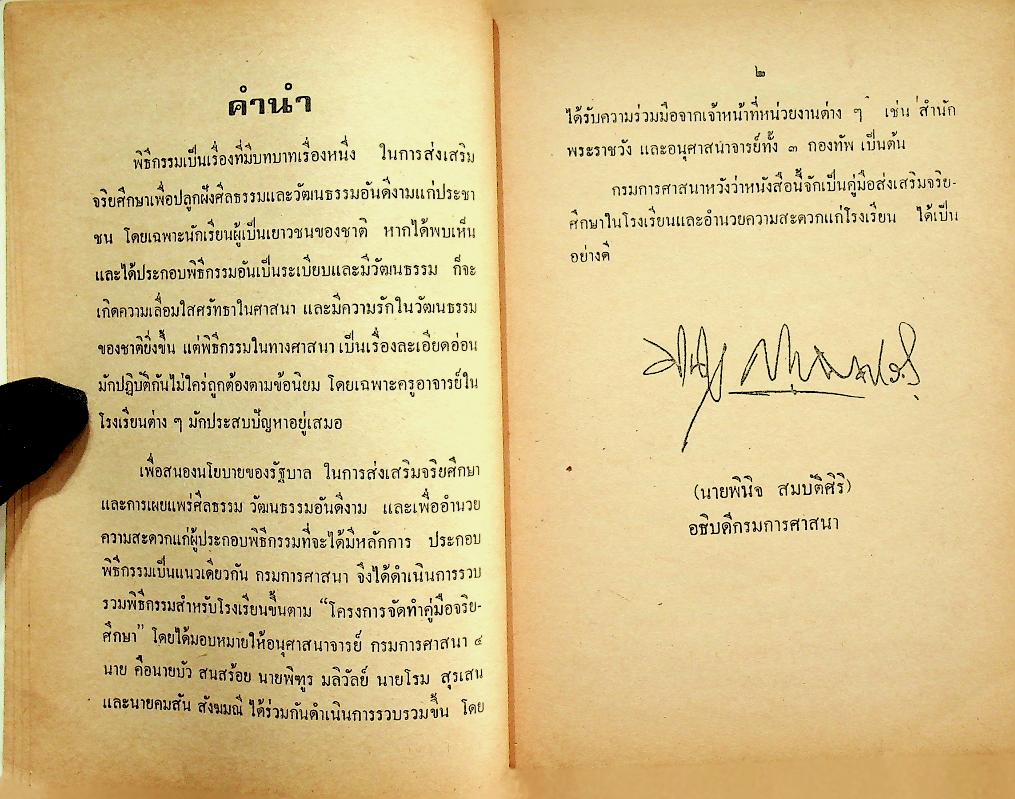 คำนำ
พิธีกรรมเป็นเรื่องที่มีบทบาทเรื่องหนึ่ง ในการส่งเสริม
จริยศึกษาเพื่อปลูกฝังศีลธรรมและวัฒนธรรมอันดีงามแก่ประชา
ชน โดยเฉพาะนักเรียนผู้เป็นเยาวชนของชาติ หากได้พบเห็น
และได้ประกอบพิธีกรรมอันเป็นระเบียบและมีวัฒนธรรม ก็จะ
เกิดความเลื่อมใสศรัทธาในศาสนา และมีความรักในวัฒนธรรม
ของชาติยิ่งขึ้น แต่พิธีกรรมในทางศาสนา เป็นเรื่องละเอียดอ่อน
มักปฏิบัติกันไม่ใคร่ถูกต้องตามข้อนิยม โดยเฉพาะครูอาจารย์ใน
โรงเรียนต่าง ๆ มักประสบปัญหาอยู่เสมอ
เพื่อสนองนโยบายของรัฐบาล ในการส่งเสริมจริยศึกษา
และการเผยแพร่ศีลธรรม วัฒนธรรมอันดีงาม และเพื่ออำนวย
ความสะดวกแก่ผู้ประกอบพิธีกรรมที่จะได้มีหลักการ ประกอบ
พิธีกรรมเป็นแนวเดียวกัน กรมการศาสนา จึงได้ดำเนินการรวบ
รวมพิธีกรรมสำหรับโรงเรียนขึ้นตาม “โครงการจัดทำคู่มือจริย-
ศึกษา” โดยได้มอบหมายให้อนุศาสนาจารย์ กรมการศาสนา ๔
นาย คือนายบัว สนสร้อย นายพิฑูร มลิวัลย์ นายโรม สุรเสน
และนายคมสัน สังฆมณี ได้ร่วมกันดำเนินการรวบรวมขึ้น โดย
๒
ได้รับความร่วมมือจากเจ้าหน้าที่หน่วยงานต่าง ๆ เช่น สำนัก
พระราชวัง และอนุศาสนาจารย์ทั้ง ๓ กองทัพ เป็นต้น
กรมการศาสนาหวังว่าหนังสือนี้จักเป็นคู่มือส่งเสริมจริย-
ศึกษาในโรงเรียนและอำนวยความสะดวกแก่โรงเรียน ได้เป็น
อย่างดี
(นายพินิจ สมบัติศิริ)
อธิบดีกรมการศาสนา